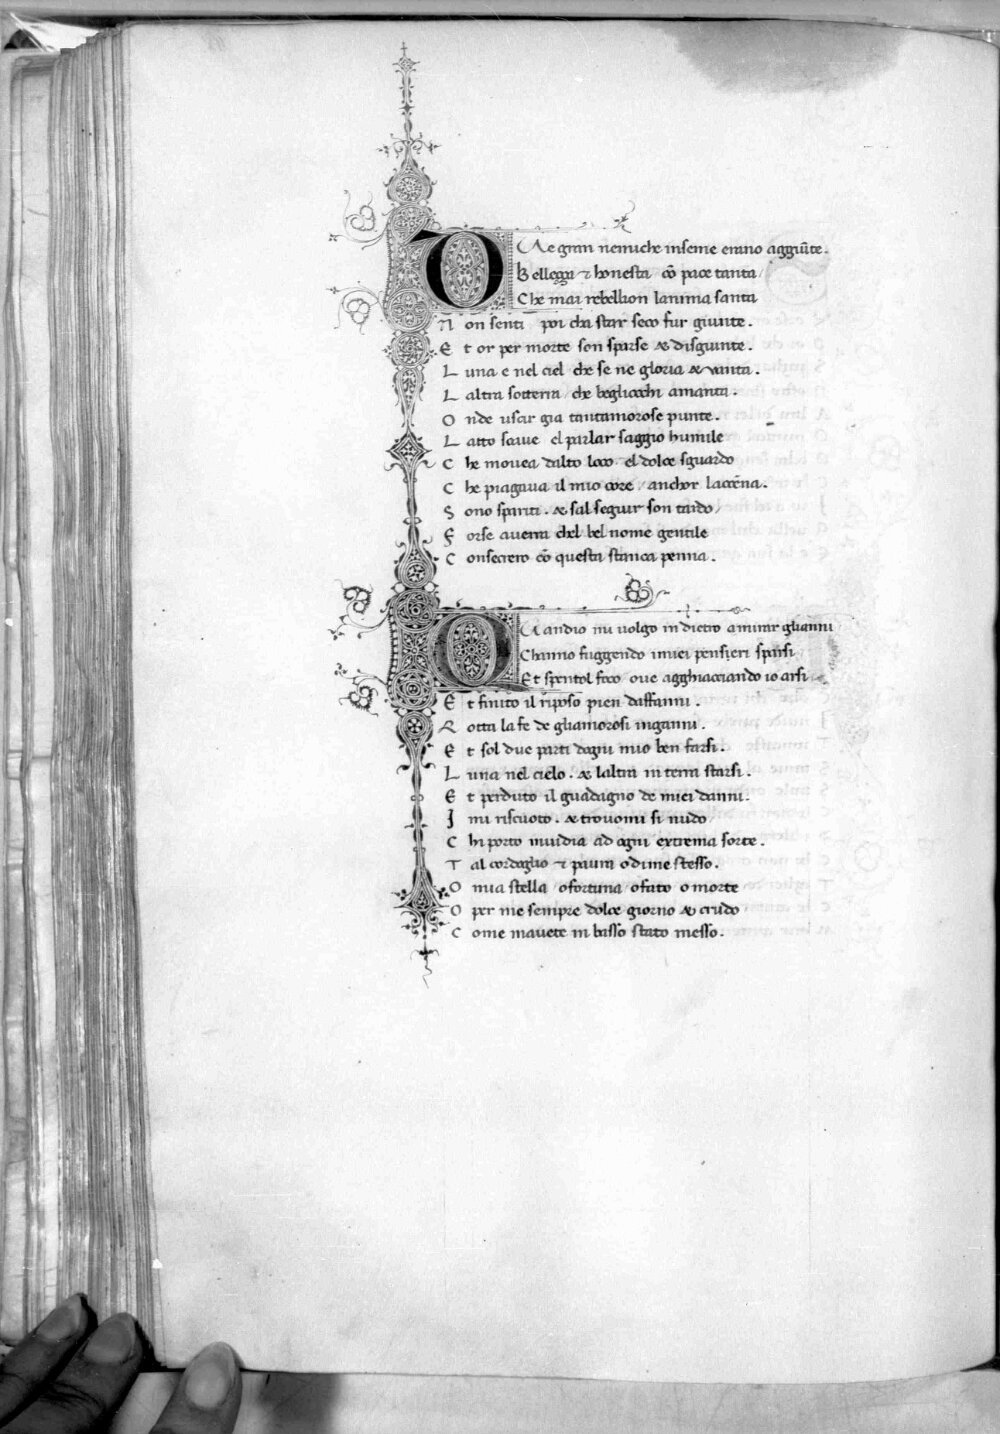 DVe gran nemiche inseme erano aggiũte.
Bellezza & honesta cõ pace tanta
Che mai rebellion lanima santa
Non senti poi cha star seco fur giunte.
Et or per morte son sparse & disgiunte.
Luna e nel ciel che se ne gloria & vanta.
Laltra sotterra che begliocchi amanta.
Onde uscir gia tantamorose punte.
Latto soaue el parlar saggio humile
Che mouea dalto loco. el dolce sguardo
Che piagaua il mio core anchor laccẽna.
Sono spariti. & sal seguir son tardo
Forse auerra chel bel nome gentile
Consecrero cõ questa stanca penna.
QVandio mi uolgo indietro a mirar glianni
Channo fuggendo i miei pensieri sparsi
Et spentol foco oue agghiacciando io arsi
Et finito il riposo pien daffanni.
Rotta la fe de gliamorosi inganni.
Et sol due parti dogni mio ben farsi.
Luna nel cielo. & laltra in terra starsi.
Et perduto il guadagno de miei danni.
I mi riscuoto. & trouomi si nudo
Chi porto inuidia ad ogni extrema sorte.
Tal cordoglio & paura o di me stesso.
O mia stella o fortuna o fato o morte
O per me sempre dolce giorno & crudo
Come mauete in basso stato messo.